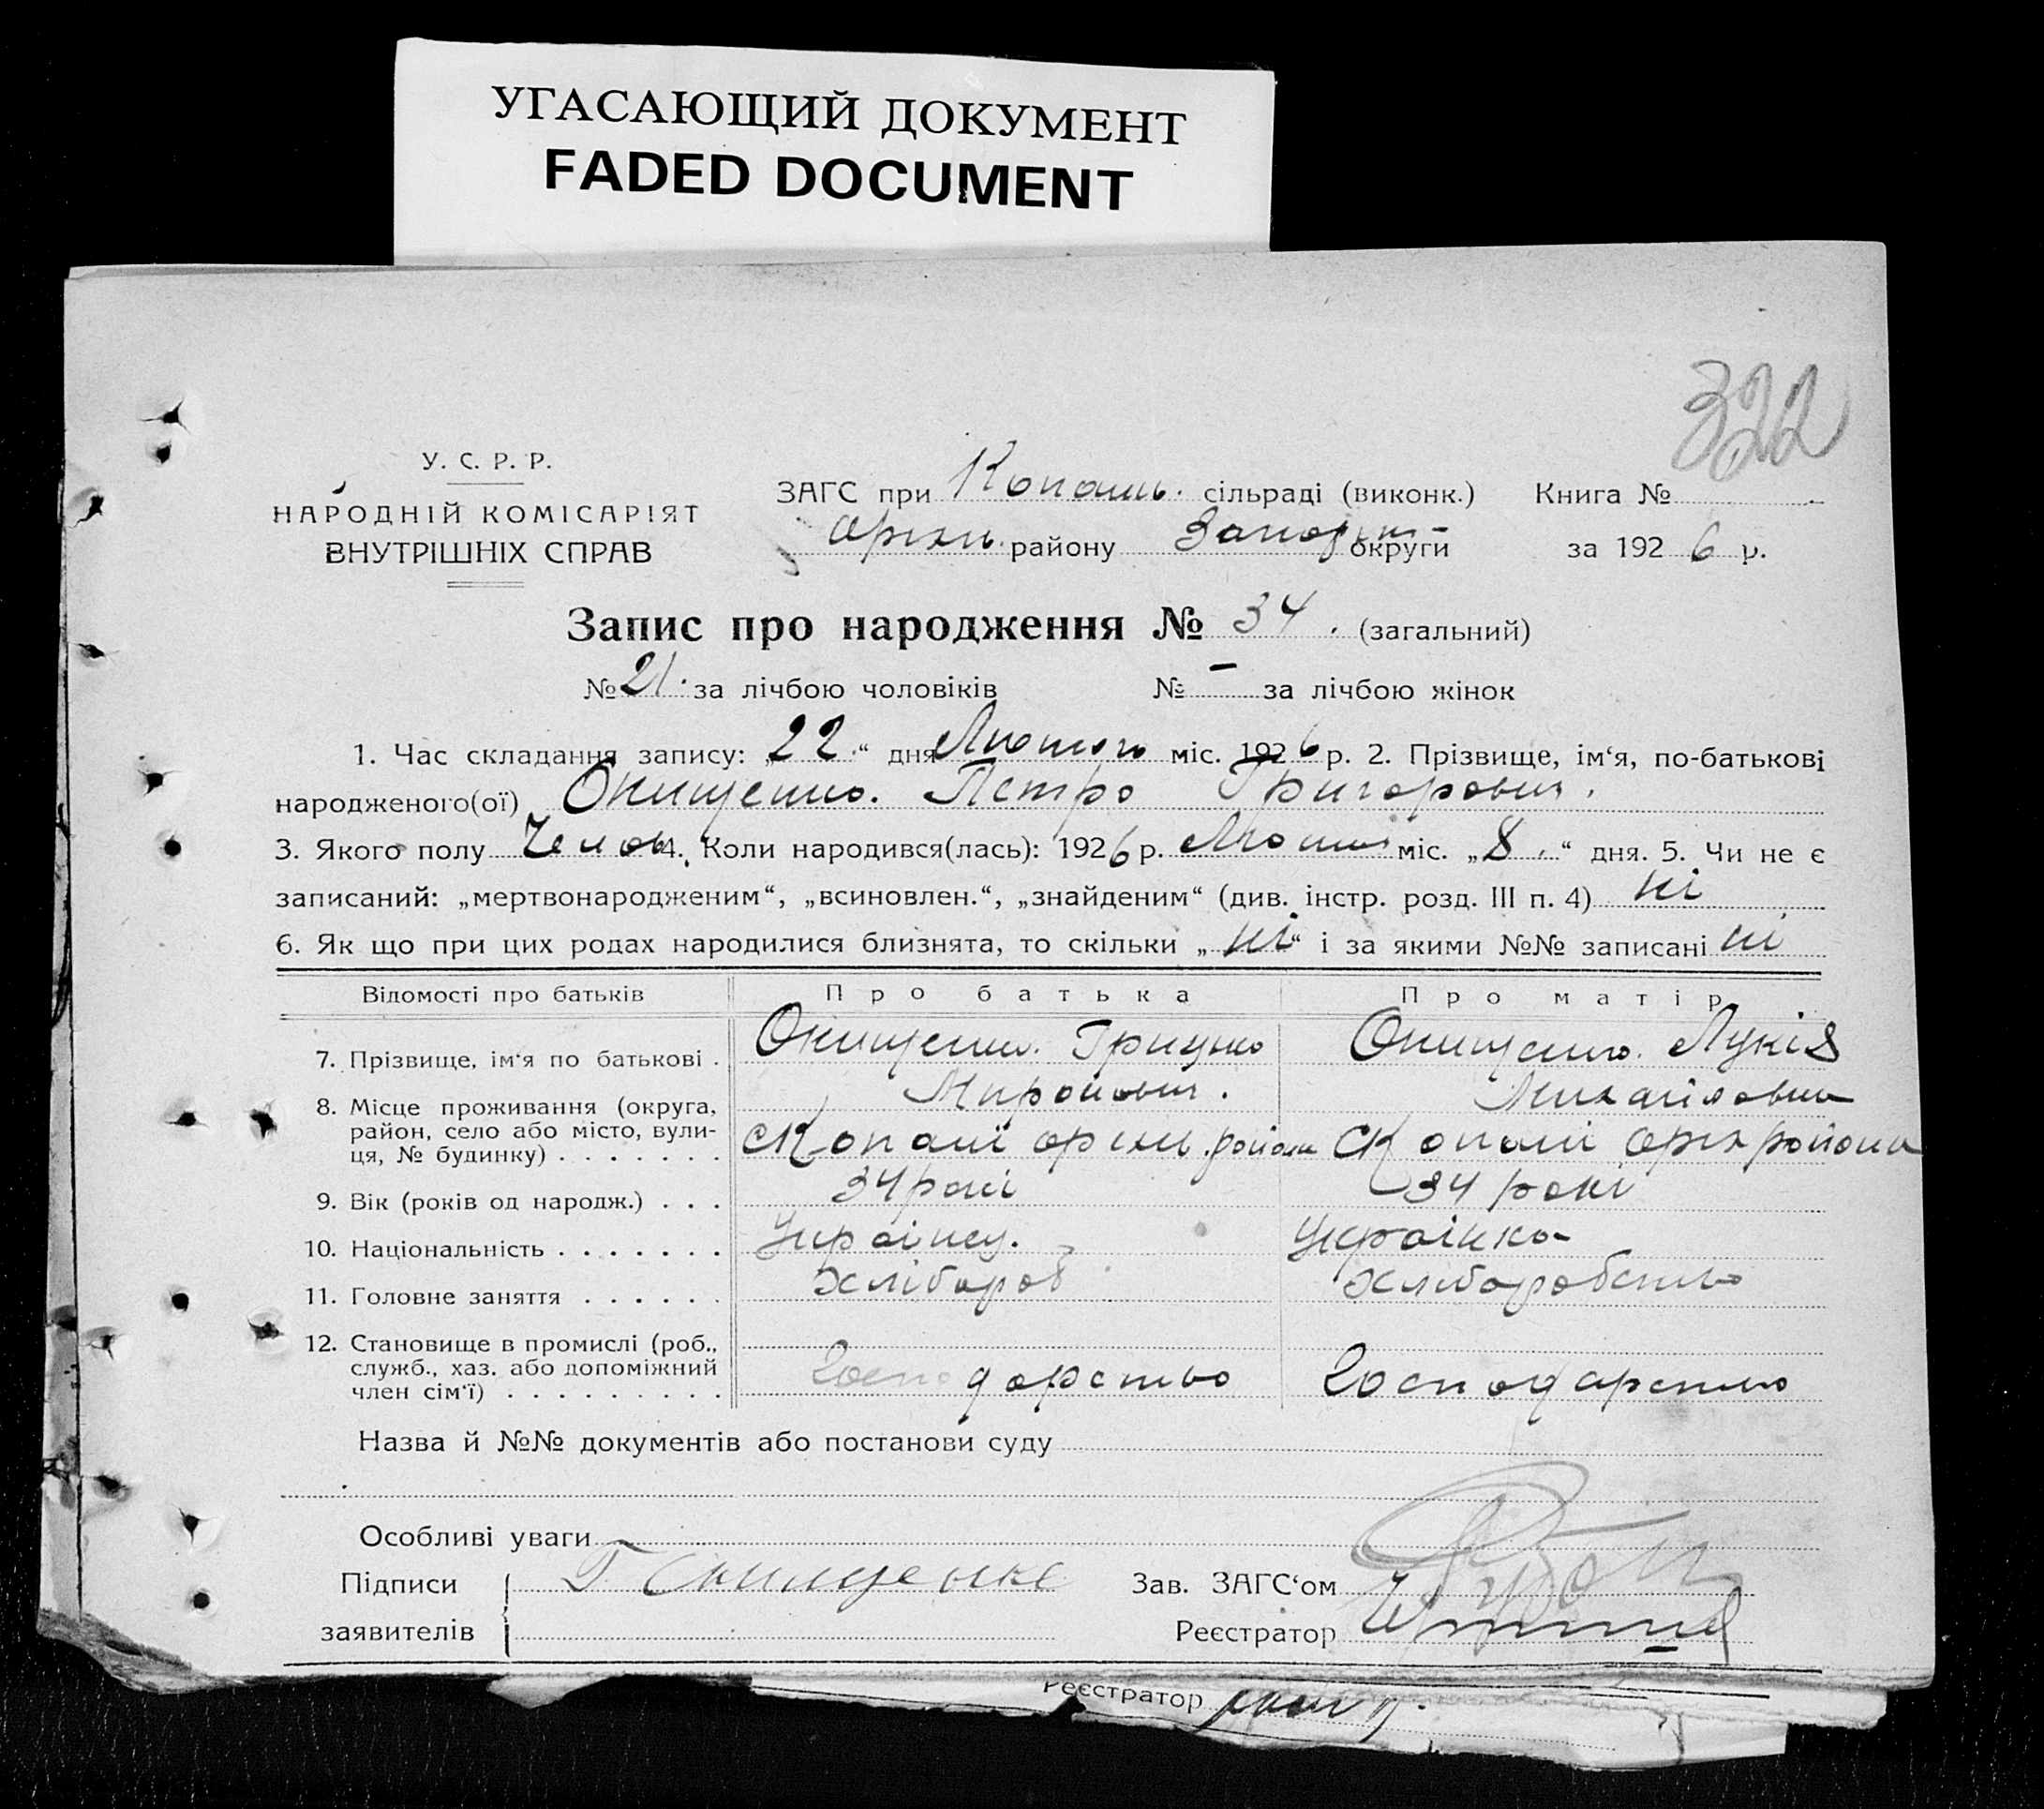 УГАСАЮЩИЙ ДОКУМЕНТ
FADED DOCUMENT
322
У. С. Р. Р.
НАРОДНІЙ КОМІСАРІЯТ
ВНУТРІШНІХ СПРАВ
ЗАГС при Копань. сільраді (виконк.) Книга №
Оріхів. району Запоріж- округи за 1926 р.
Запис про народження № 34. (загальний)
№ 21. за лічбою чоловіків № – за лічбою жінок
1. Час складання запису: „22.“ дня Лютого міс. 1926 р. 2. Прізвище, ім‘я, по-батькові
народженого(ої) Онищенко. Петро Григорович.
3. Якого полу Челов. 4. Коли народився(лась): 1926 р. міс. „8.“ дня. 5. Чи не є
записаний: „мертвонародженим“, „всиновлен.“, „знайденим“ (див. інстр. розд. III п. 4) ні
6. Як що при цих родах народилися близнята, то скільки „ні“ і за якими №№ записані ні
Відомості про батьків Про батька Про матір
7. Прізвище, ім‘я по батькові . Онищенко. Грицько Миронович. Онищенко. Лукія Михайловна
8. Місце проживання (округа,
район, село або місто, вули-
ця, № будинку) . . . . . . . с Копані оріхів. района с Копані оріх района
9. Вік (років од народж.) . . . 34 рокі 34 рокі
10. Національність . . . . . . . Українец. Українка
11. Головне заняття . . . . . . Хлібороб Хліборобство
12. Становище в промислі (роб.,
служб., хаз. або допоміжний
член сім‘ї) . . . . . . . . . Господарство Господарство
Назва й №№ документів або постанови суду
Особливі уваги
Підписи Г Онищенко Зав. ЗАГС‘ом
заявителів Реєстратор
Реєстратор